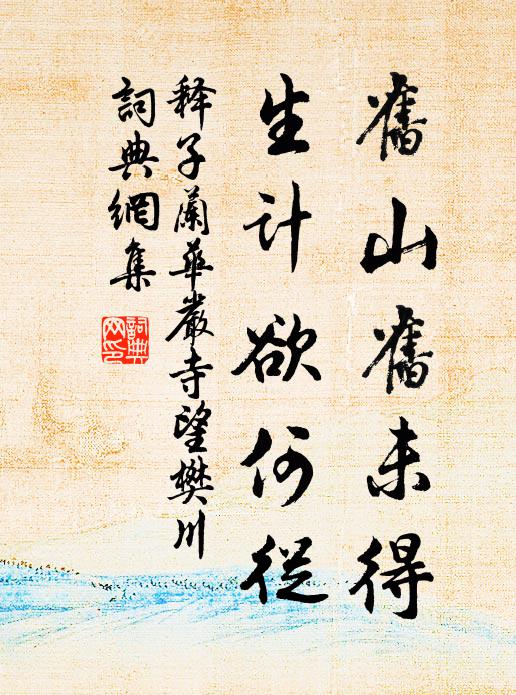 舊山舊未得
生计欲何從
释子蘭華嚴寺望樊川
詞典網集
詞典网印